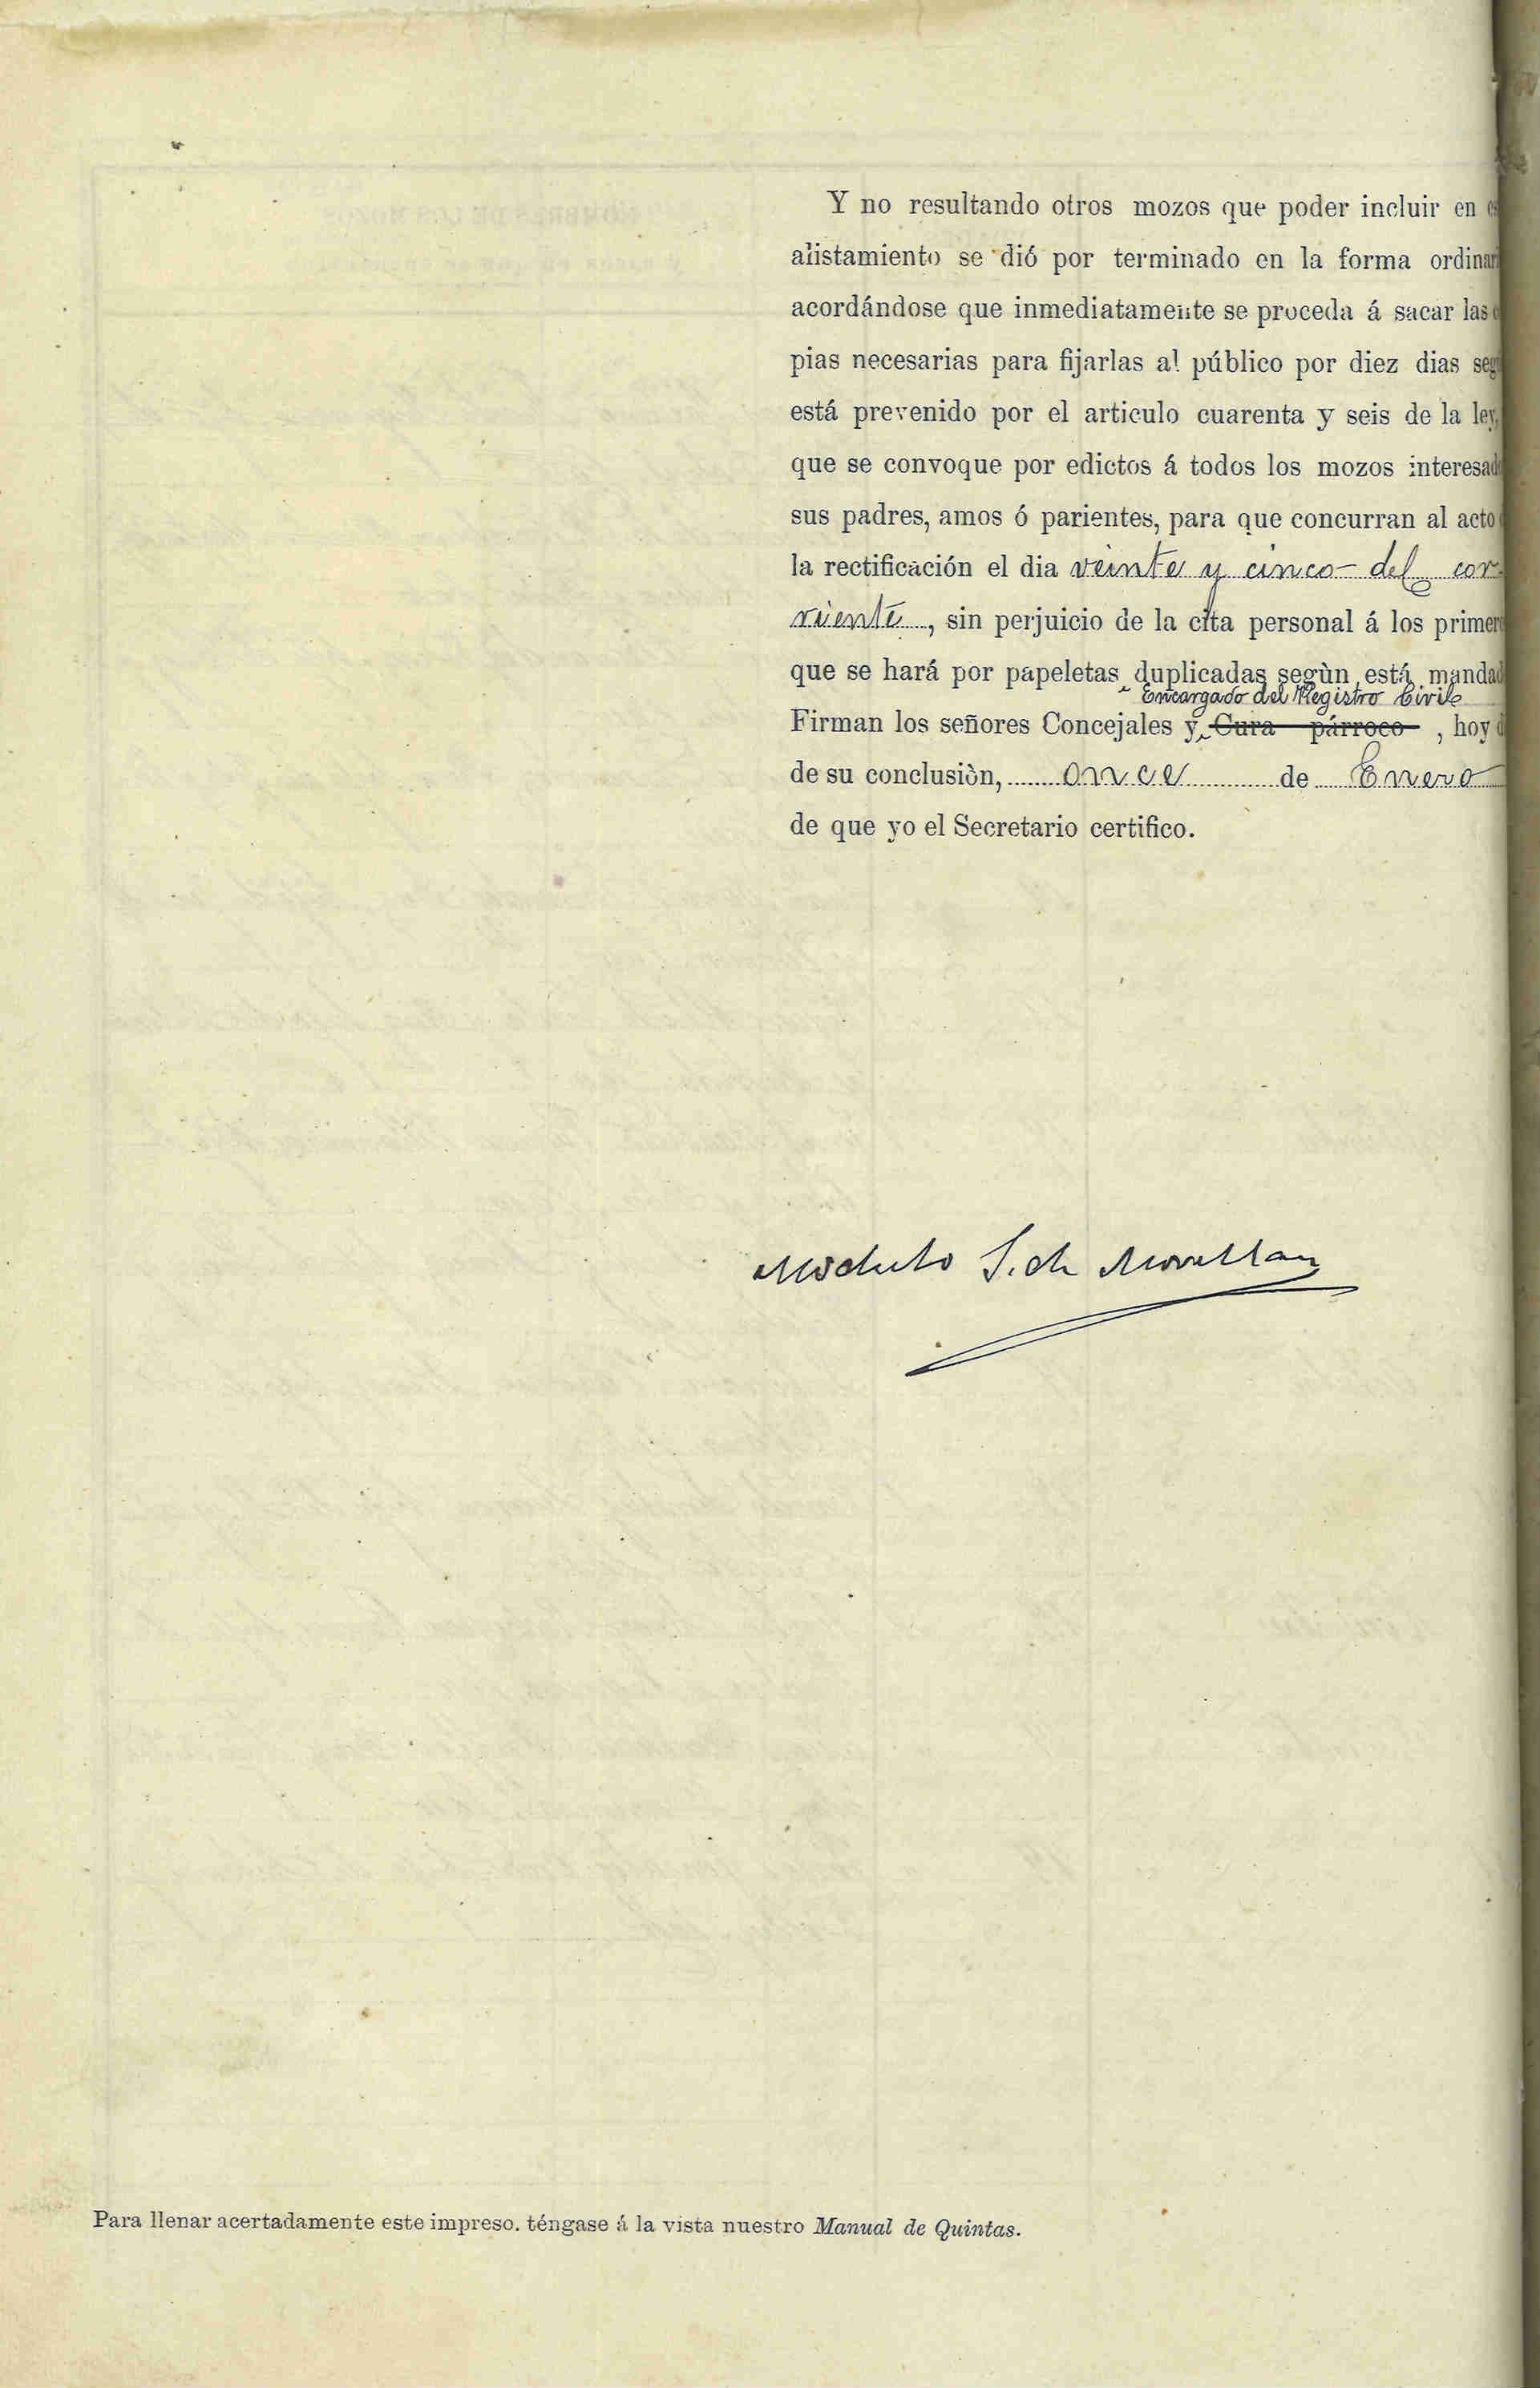 Y no resultando otros mozos que poder incluir en
alistamiento se dió por terminado en la forma ordinar
acordándose que inmediatamente se proceda á sacar las
pias necesarias para fijarlas al público por diez dias seg
está prevenido por el articulo cuarenta y seis de la ley,
que se convoque por edictos á todos los mozos interesad
sus padres, amos ó parientes, para que concurran al acto
la rectificación el dia veinte y cinco del cor-
riente, sin perjuicio de la cita personal á los primer
que se hará por papeletas duplicadas segùn está mandad
Encargado del Registro Civil
Firman los señores Concejales y Cura párroco, hoy
de su conclusiòn, once de Enero
de que yo el Secretario certifico.
Modesto S. de Movellan
Para llenar acertadamente este impreso. téngase á la vista nuestro Manual de Quintas.